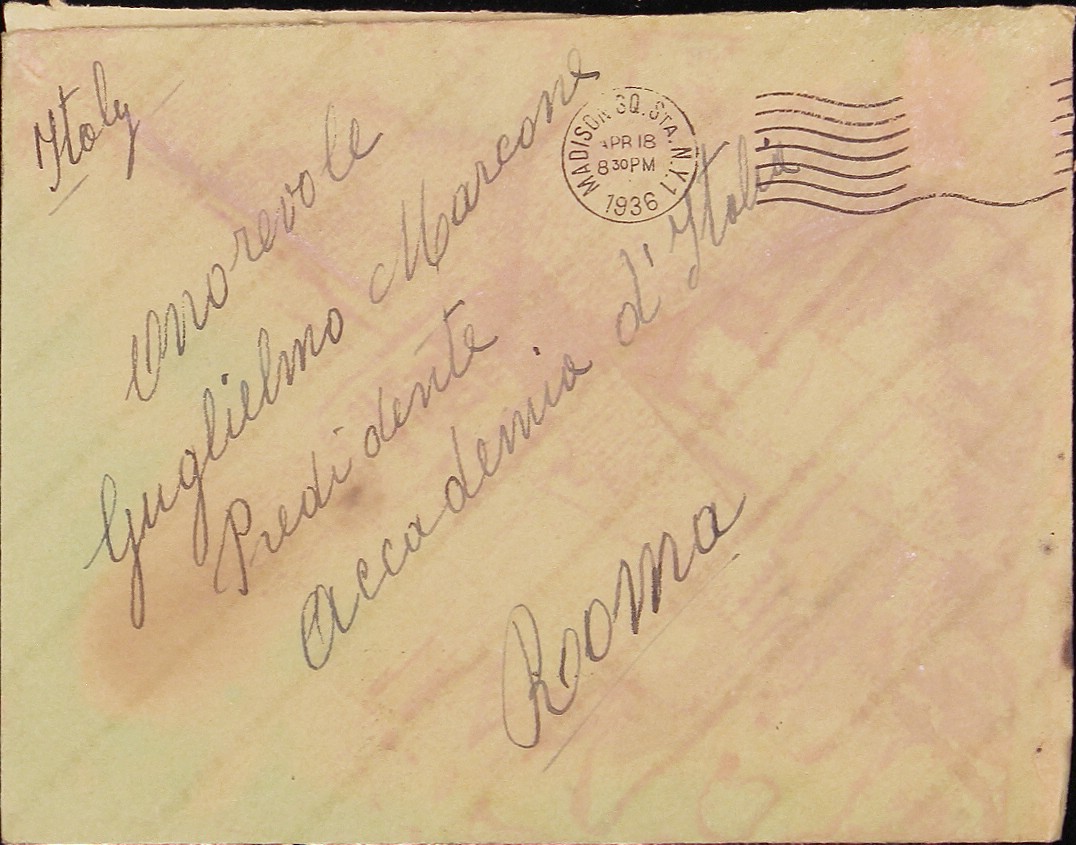 Italy
MADISON SQ. STA. N.Y. 1
APR 18
8 30 PM
1936
Onorevole
Guglielmo Marcone
Predidente
Accademia d'Italia
Rooma